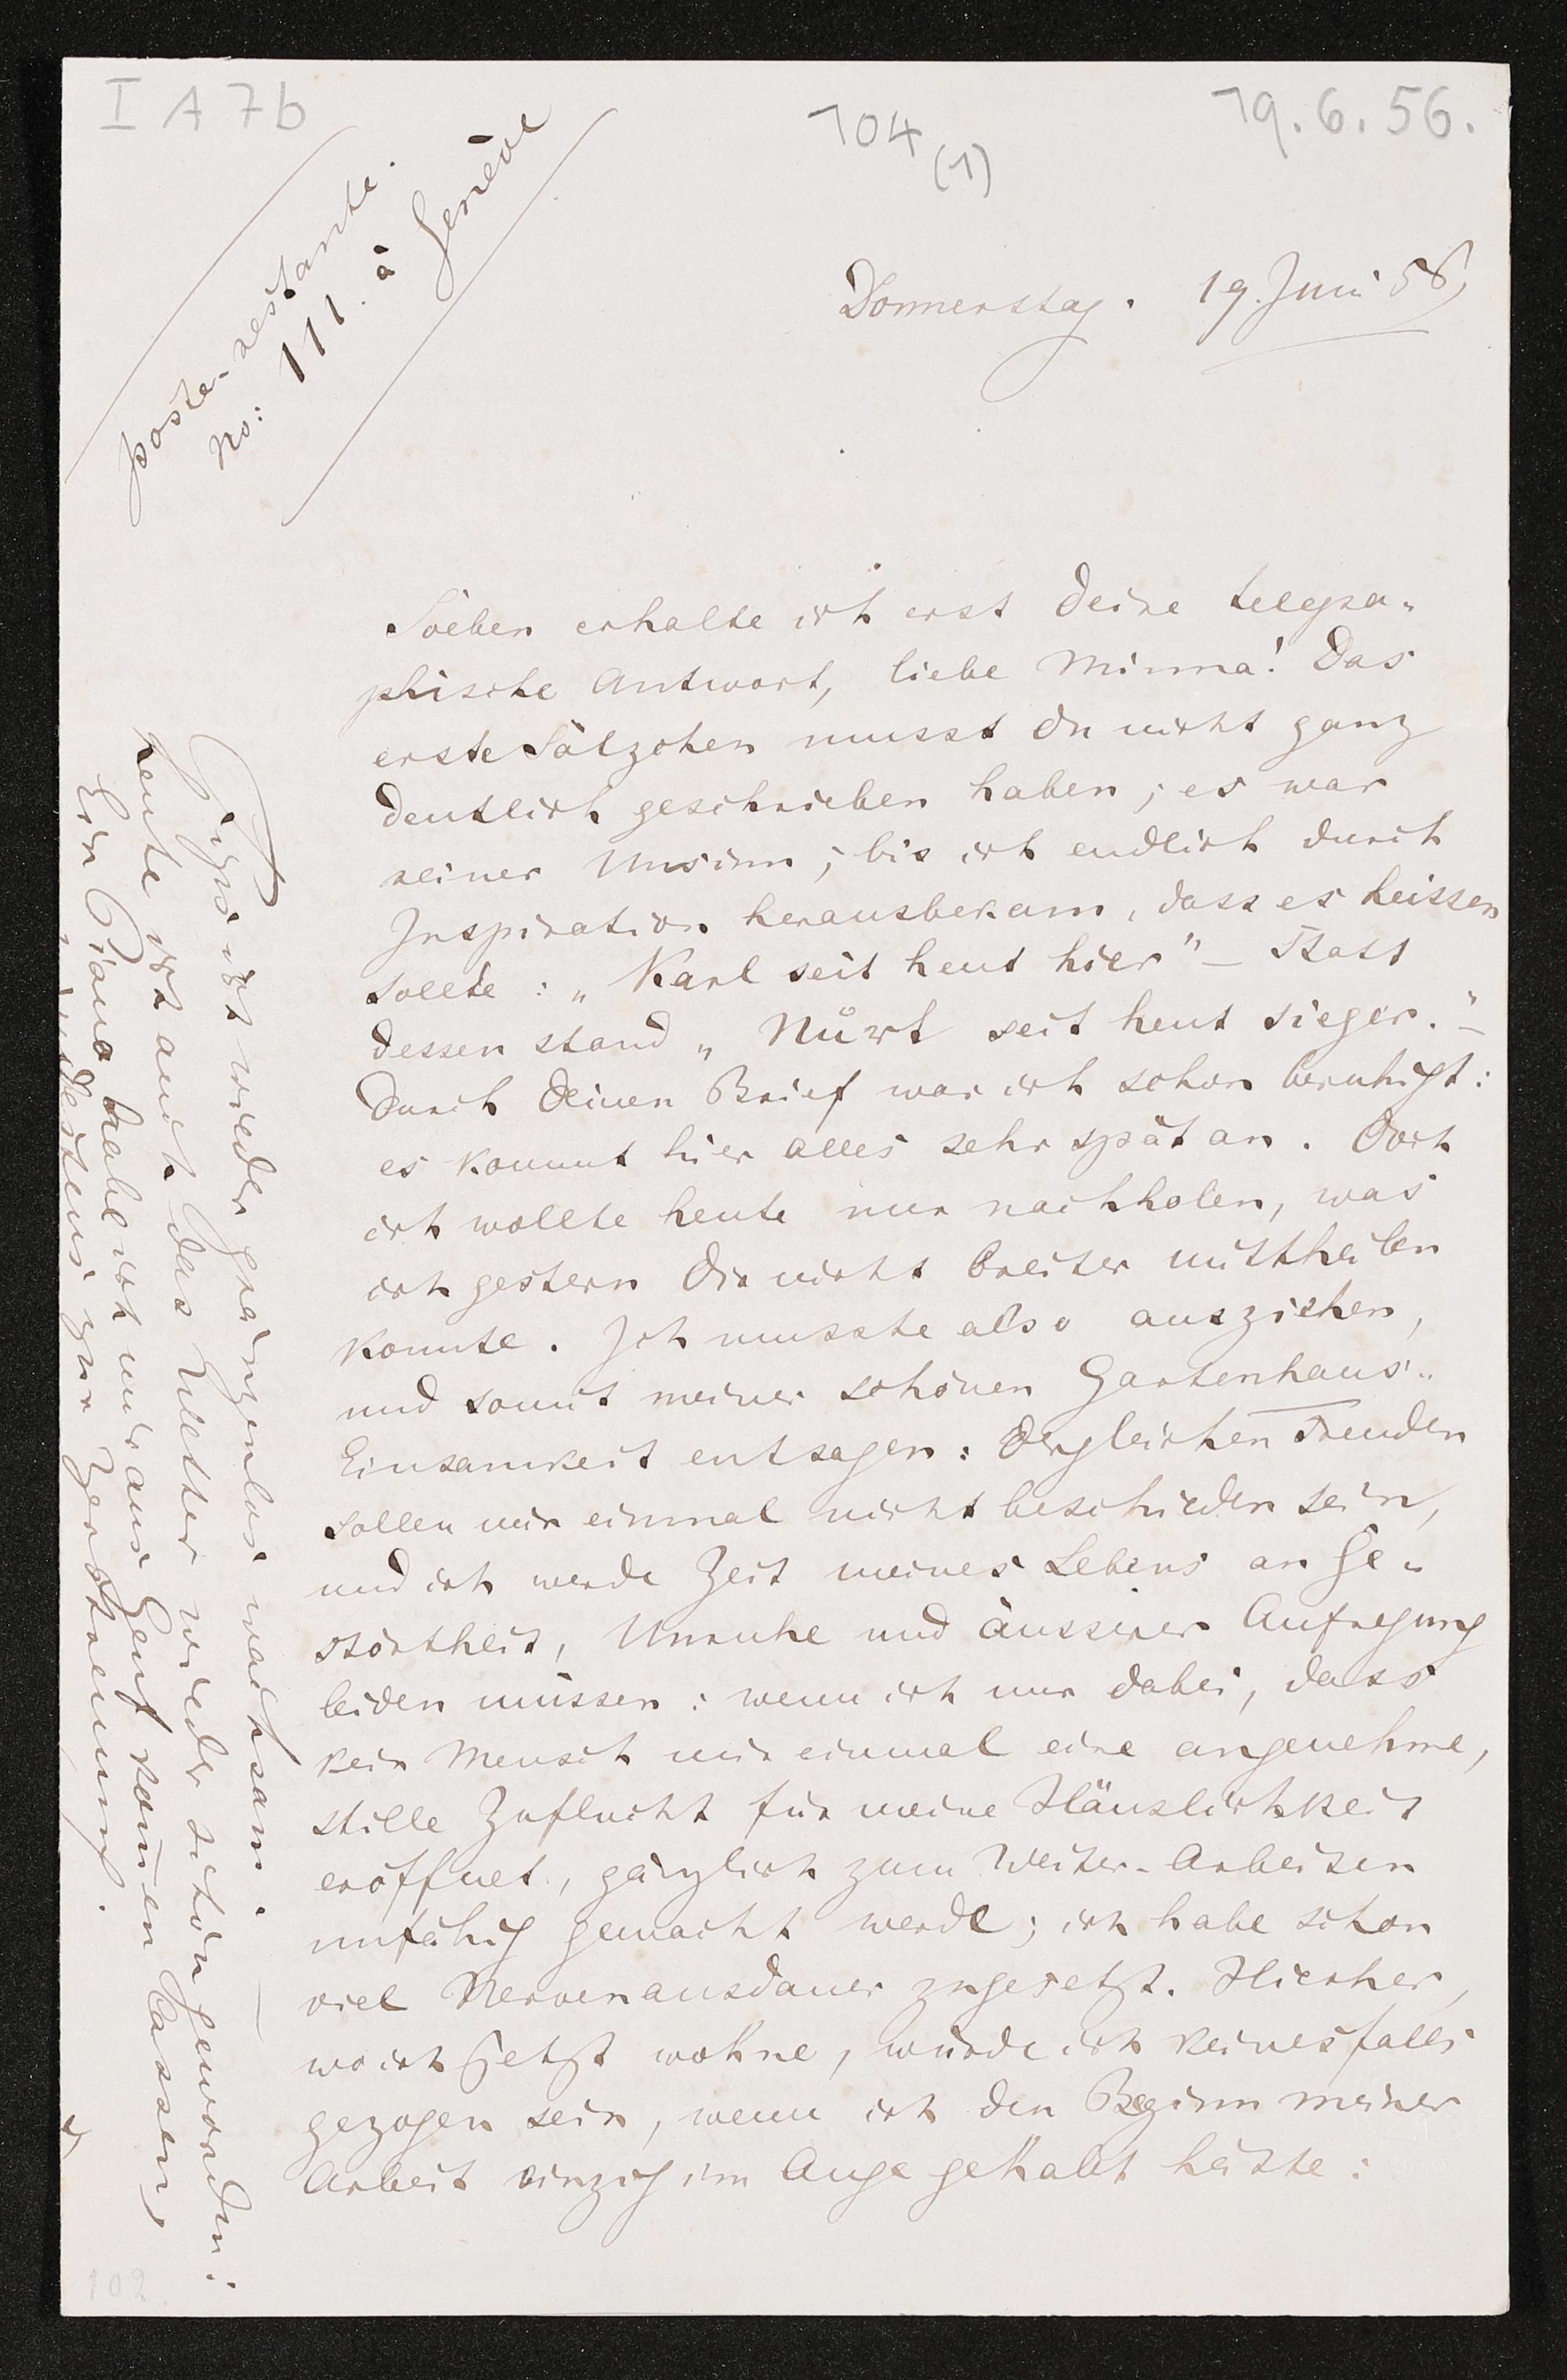 I A 7b
104
(1)
19.6.56.
poste-restante.
No: 111. à Genève
Donnerstag. 19. Juni 56
Soeben erhalte ich erst Deine telegra-
phische Antwort, liebe Minna! Das
erste Sätzchen musst Du nicht ganz
deutlich geschrieben haben; es war
reiner Unsinn; bis ich endlich durch
Inspiration herausbekam, dass es heissen
sollte: „Karl seit heut hier" – Statt
dessen stand „Nürt seit heut sieger." –
Durch Deinen Brief war ich schon beruhigt:
es kommt hier alles sehr spät an. Doch
ich wollte heute nur nachholen, was
ich gestern Dir nicht breiter mittheilen
konnte. Ich musste also ausziehen,
und somit meiner schönen Gartenhaus-
Einsamkeit entsagen: dergleichen Freuden
sollen mir einmal nicht beschieden sein,
und ich werde Zeit meines Lebens an Ge-
störtheit, Unruhe und äusserer Aufregung
leiden müssen: wenn ich nur dabei, dass
kein Mensch mir einmal eine angenehme,
stille Zuflucht für meine Häuslichkeit
eröffnet, gänzlich zum Weiter-Arbeiten
unfähig gemacht werde; ich habe schon
viel Nervenausdauer zugesetzt. Hierher,
wo ich jetzt wohne, würde ich keinesfalls
gezogen sein, wenn ich den Beginn meiner
Arbeit einzig im Auge gehabt hätte:
Fips ist wieder gränzenlos wachsam. –
heute ist auch das Wetter wieder schön geworden:
Ein Piano habe ich mir aus Genf kom̄en lassen,
wenigstens zur Zerstreuung.
102